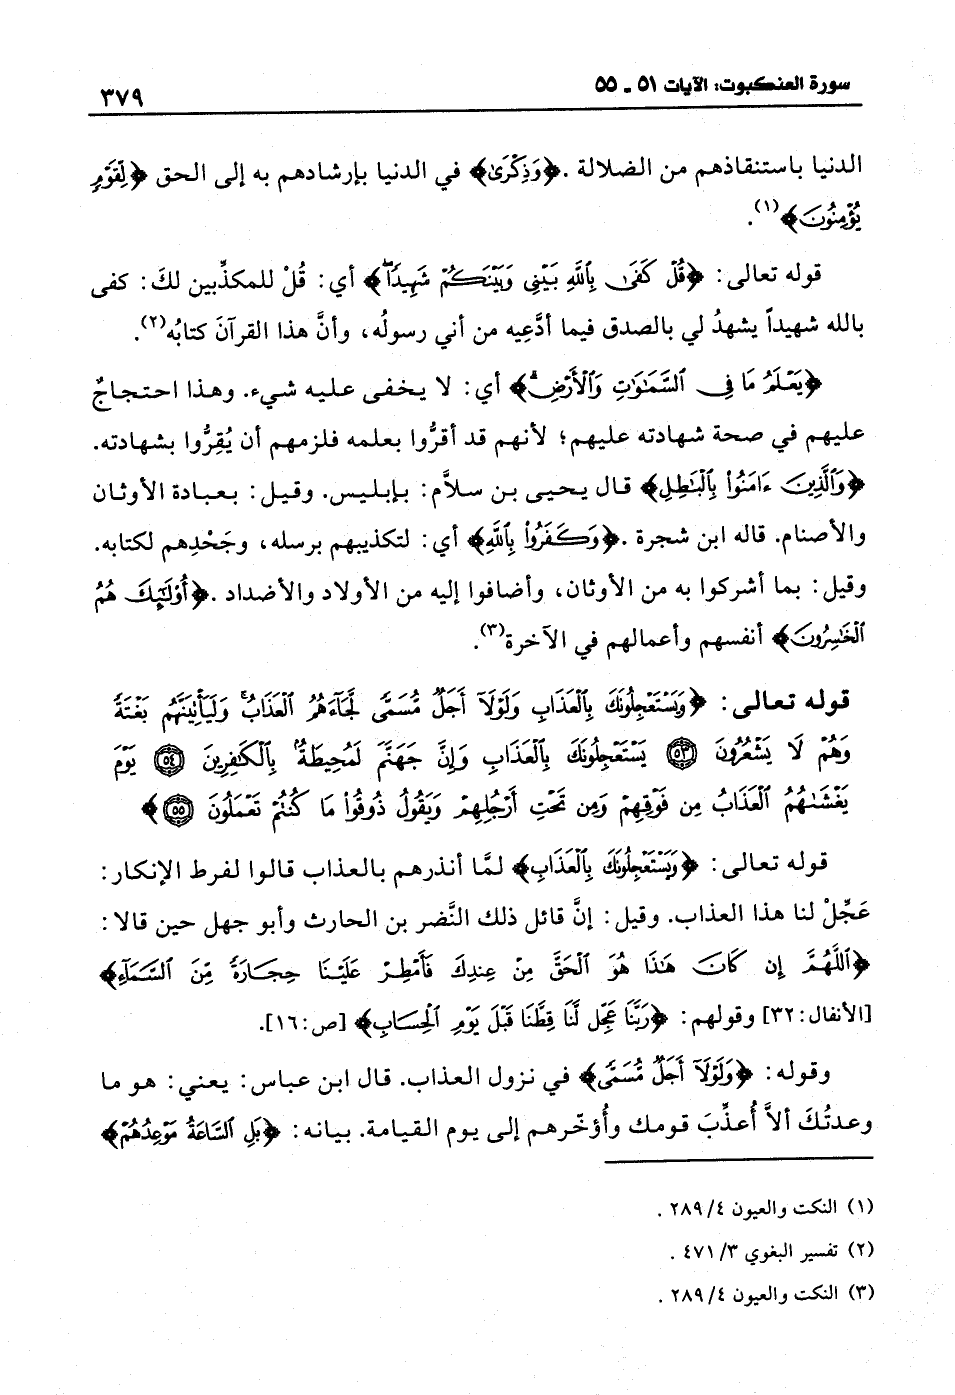 سورة العنكبوت: الآيات ٥١ ـ ٥٥
٣٧٩
الدنيا باستنقاذهم من الضلالة. ﴿وَذِكْرَىٰ﴾ في الدنيا بإرشادهم به إلى الحق ﴿لِقَوْمٍ
يُؤْمِنُونَ﴾(١).
قوله تعالى: ﴿قُلْ كَفَىٰ بِٱللَّهِ بَيْنِى وَبَيْنَكُمْ شَهِيدًاۖ﴾ أي: قُلْ للمكذِّبين لكَ: كفى
بالله شهيداً يشهدُ لي بالصدق فيما أدَّعِيه من أني رسولُه، وأنَّ هذا القرآنَ كتابُه(٢).
﴿يَعْلَمُ مَا فِى ٱلسَّمَٰوَٰتِ وَٱلْأَرْضِۗ﴾ أي: لا يخفى عليه شيء. وهذا احتجاجٌ
عليهم في صحة شهادته عليهم؛ لأنهم قد أقرُّوا بعلمه فلزمهم أن يُقِرُّوا بشهادته.
﴿وَٱلَّذِينَ ءَامَنُوا۟ بِٱلْبَٰطِلِ﴾ قال يحيى بن سلاَّم: بإبليس. وقيل: بعبادة الأوثان
والأصنام. قاله ابن شجرة. ﴿وَكَفَرُوا۟ بِٱللَّهِ﴾ أي: لتكذيبهم برسله، وجَحْدِهم لكتابه.
وقيل: بما أشركوا به من الأوثان، وأضافوا إليه من الأولاد والأضداد. ﴿أُو۟لَٰٓئِكَ هُمُ
ٱلْخَٰسِرُونَ﴾ أنفسهم وأعمالهم في الآخرة(٣).
قوله تعالى: ﴿وَيَسْتَعْجِلُونَكَ بِٱلْعَذَابِ وَلَوْلَآ أَجَلٌ مُّسَمًّى لَّجَآءَهُمُ ٱلْعَذَابُۚ وَلَيَأْتِيَنَّهُم بَغْتَةً
وَهُمْ لَا يَشْعُرُونَ ﴿٥٣﴾ يَسْتَعْجِلُونَكَ بِٱلْعَذَابِ وَإِنَّ جَهَنَّمَ لَمُحِيطَةٌۢ بِٱلْكَٰفِرِينَ ﴿٥٤﴾ يَوْمَ
يَغْشَىٰهُمُ ٱلْعَذَابُ مِن فَوْقِهِمْ وَمِن تَحْتِ أَرْجُلِهِمْ وَيَقُولُ ذُوقُوا۟ مَا كُنتُمْ تَعْمَلُونَ ﴿٥٥﴾﴾
قوله تعالى: ﴿وَيَسْتَعْجِلُونَكَ بِٱلْعَذَابِ﴾ لمَّا أنذرهم بالعذاب قالوا لفرط الإنكار:
عَجِّلْ لنا هذا العذاب. وقيل: إنَّ قائل ذلك النَّضر بن الحارث وأبو جهل حين قالا:
﴿ٱللَّهُمَّ إِن كَانَ هَٰذَا هُوَ ٱلْحَقَّ مِنْ عِندِكَ فَأَمْطِرْ عَلَيْنَا حِجَارَةً مِّنَ ٱلسَّمَآءِ﴾
[الأنفال: ٣٢] وقولهم: ﴿رَبَّنَا عَجِّل لَّنَا قِطَّنَا قَبْلَ يَوْمِ ٱلْحِسَابِ﴾ [ص: ١٦].
وقوله: ﴿وَلَوْلَآ أَجَلٌ مُّسَمًّى﴾ في نزول العذاب. قال ابن عباس: يعني: هو ما
وعدتُكَ ألاَّ أُعذِّبَ قومك وأُؤخّرهم إلى يوم القيامة. بيانه: ﴿بَلِ ٱلسَّاعَةُ مَوْعِدُهُمْ﴾
(١) النكت والعيون ٤/ ٢٨٩ .
(٢) تفسير البغوي ٣/ ٤٧١ .
(٣) النكت والعيون ٤/ ٢٨٩ .